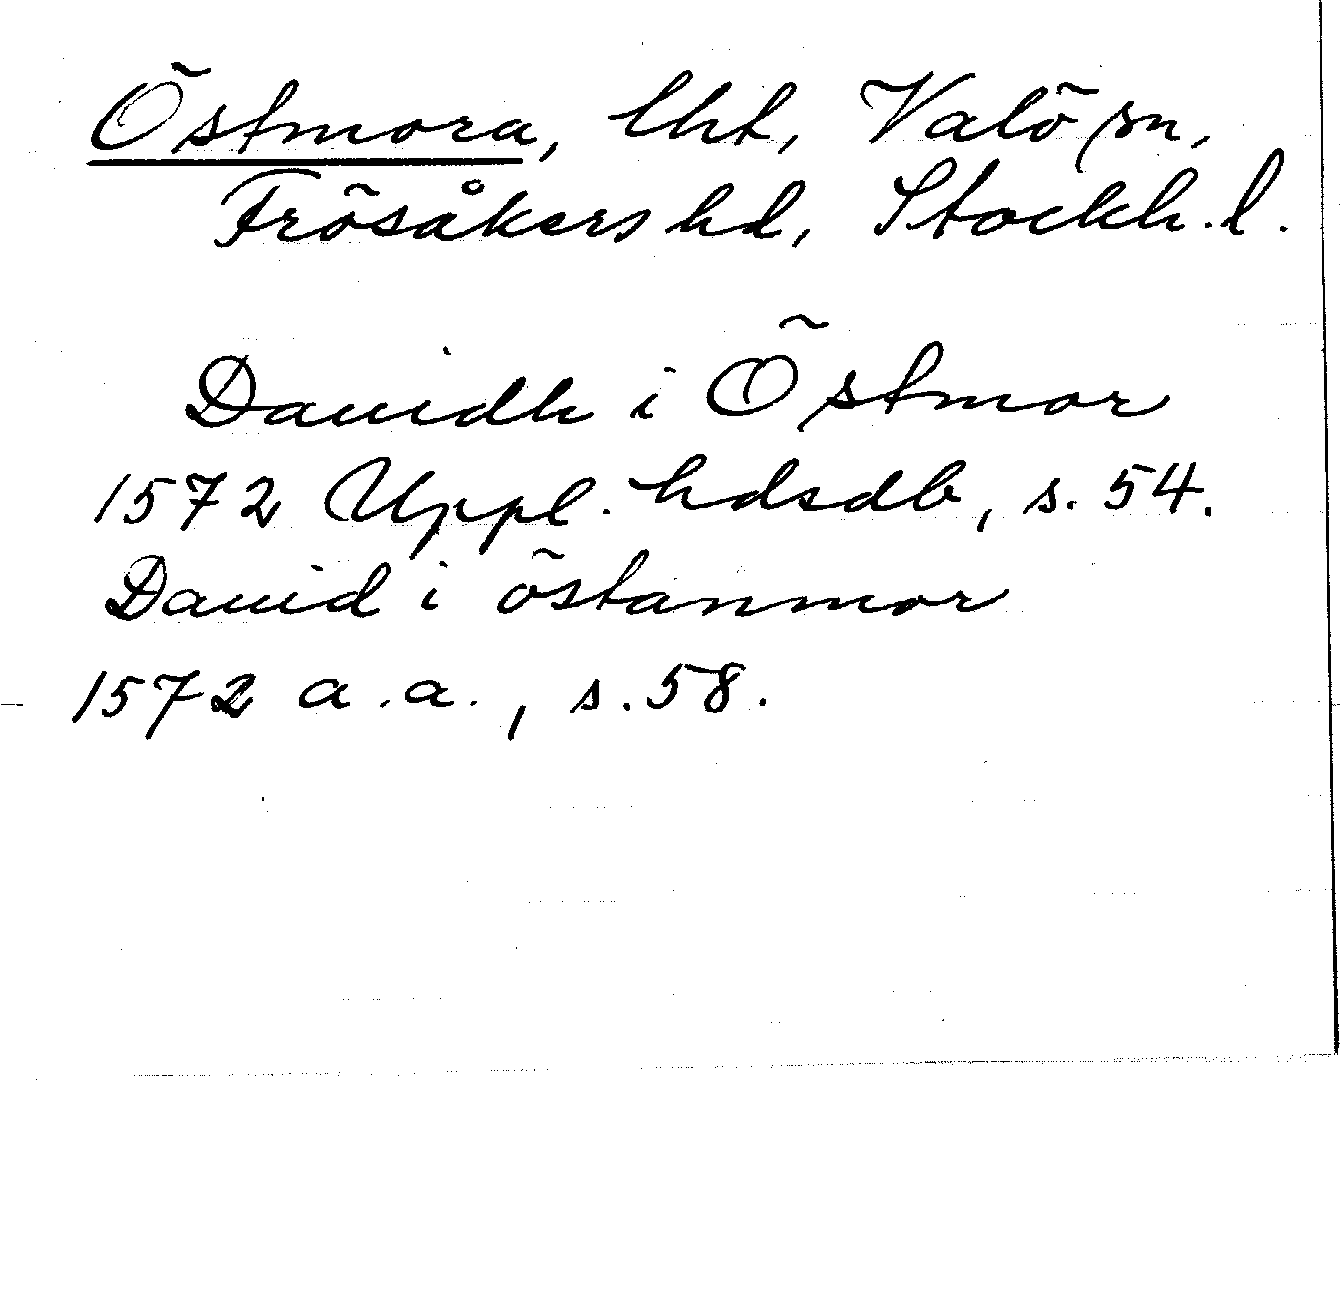 Östmora, lht, Valö sn,
Frösåkers hd, Stockh. l.
Dauidh i Östmor
1572 Uppl. hdsdb, s. 54.
Dauid i östanmor
1572 a.a., s. 58.